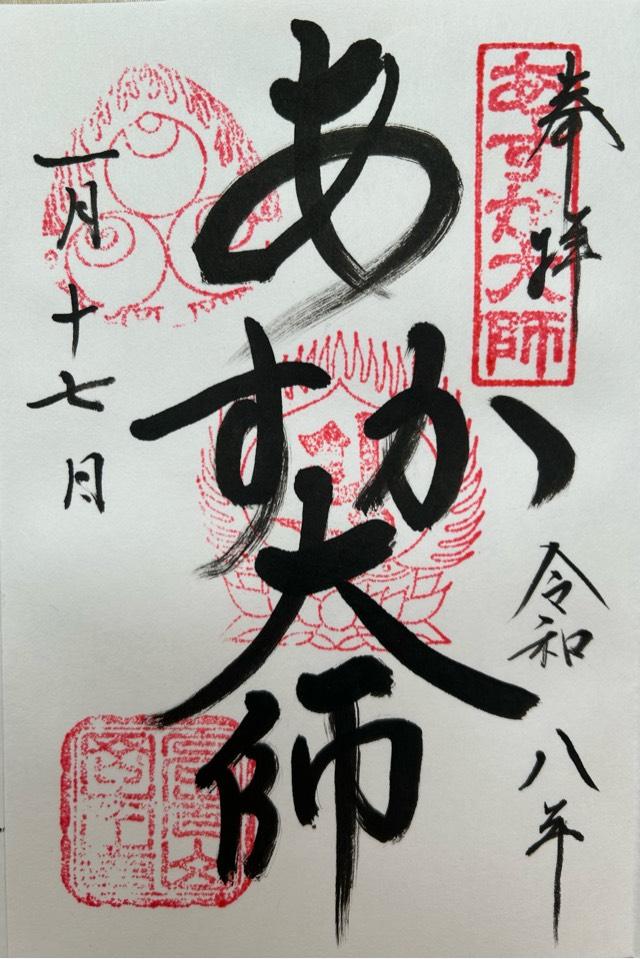 奉拝
あすか大師
令和八年
あすか大師
一月十七日